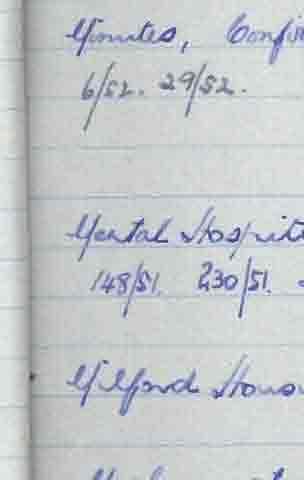 Minutes, Confir
6/52. 29/52.
Mental Hospita
148/51. 230/51.
Milford House